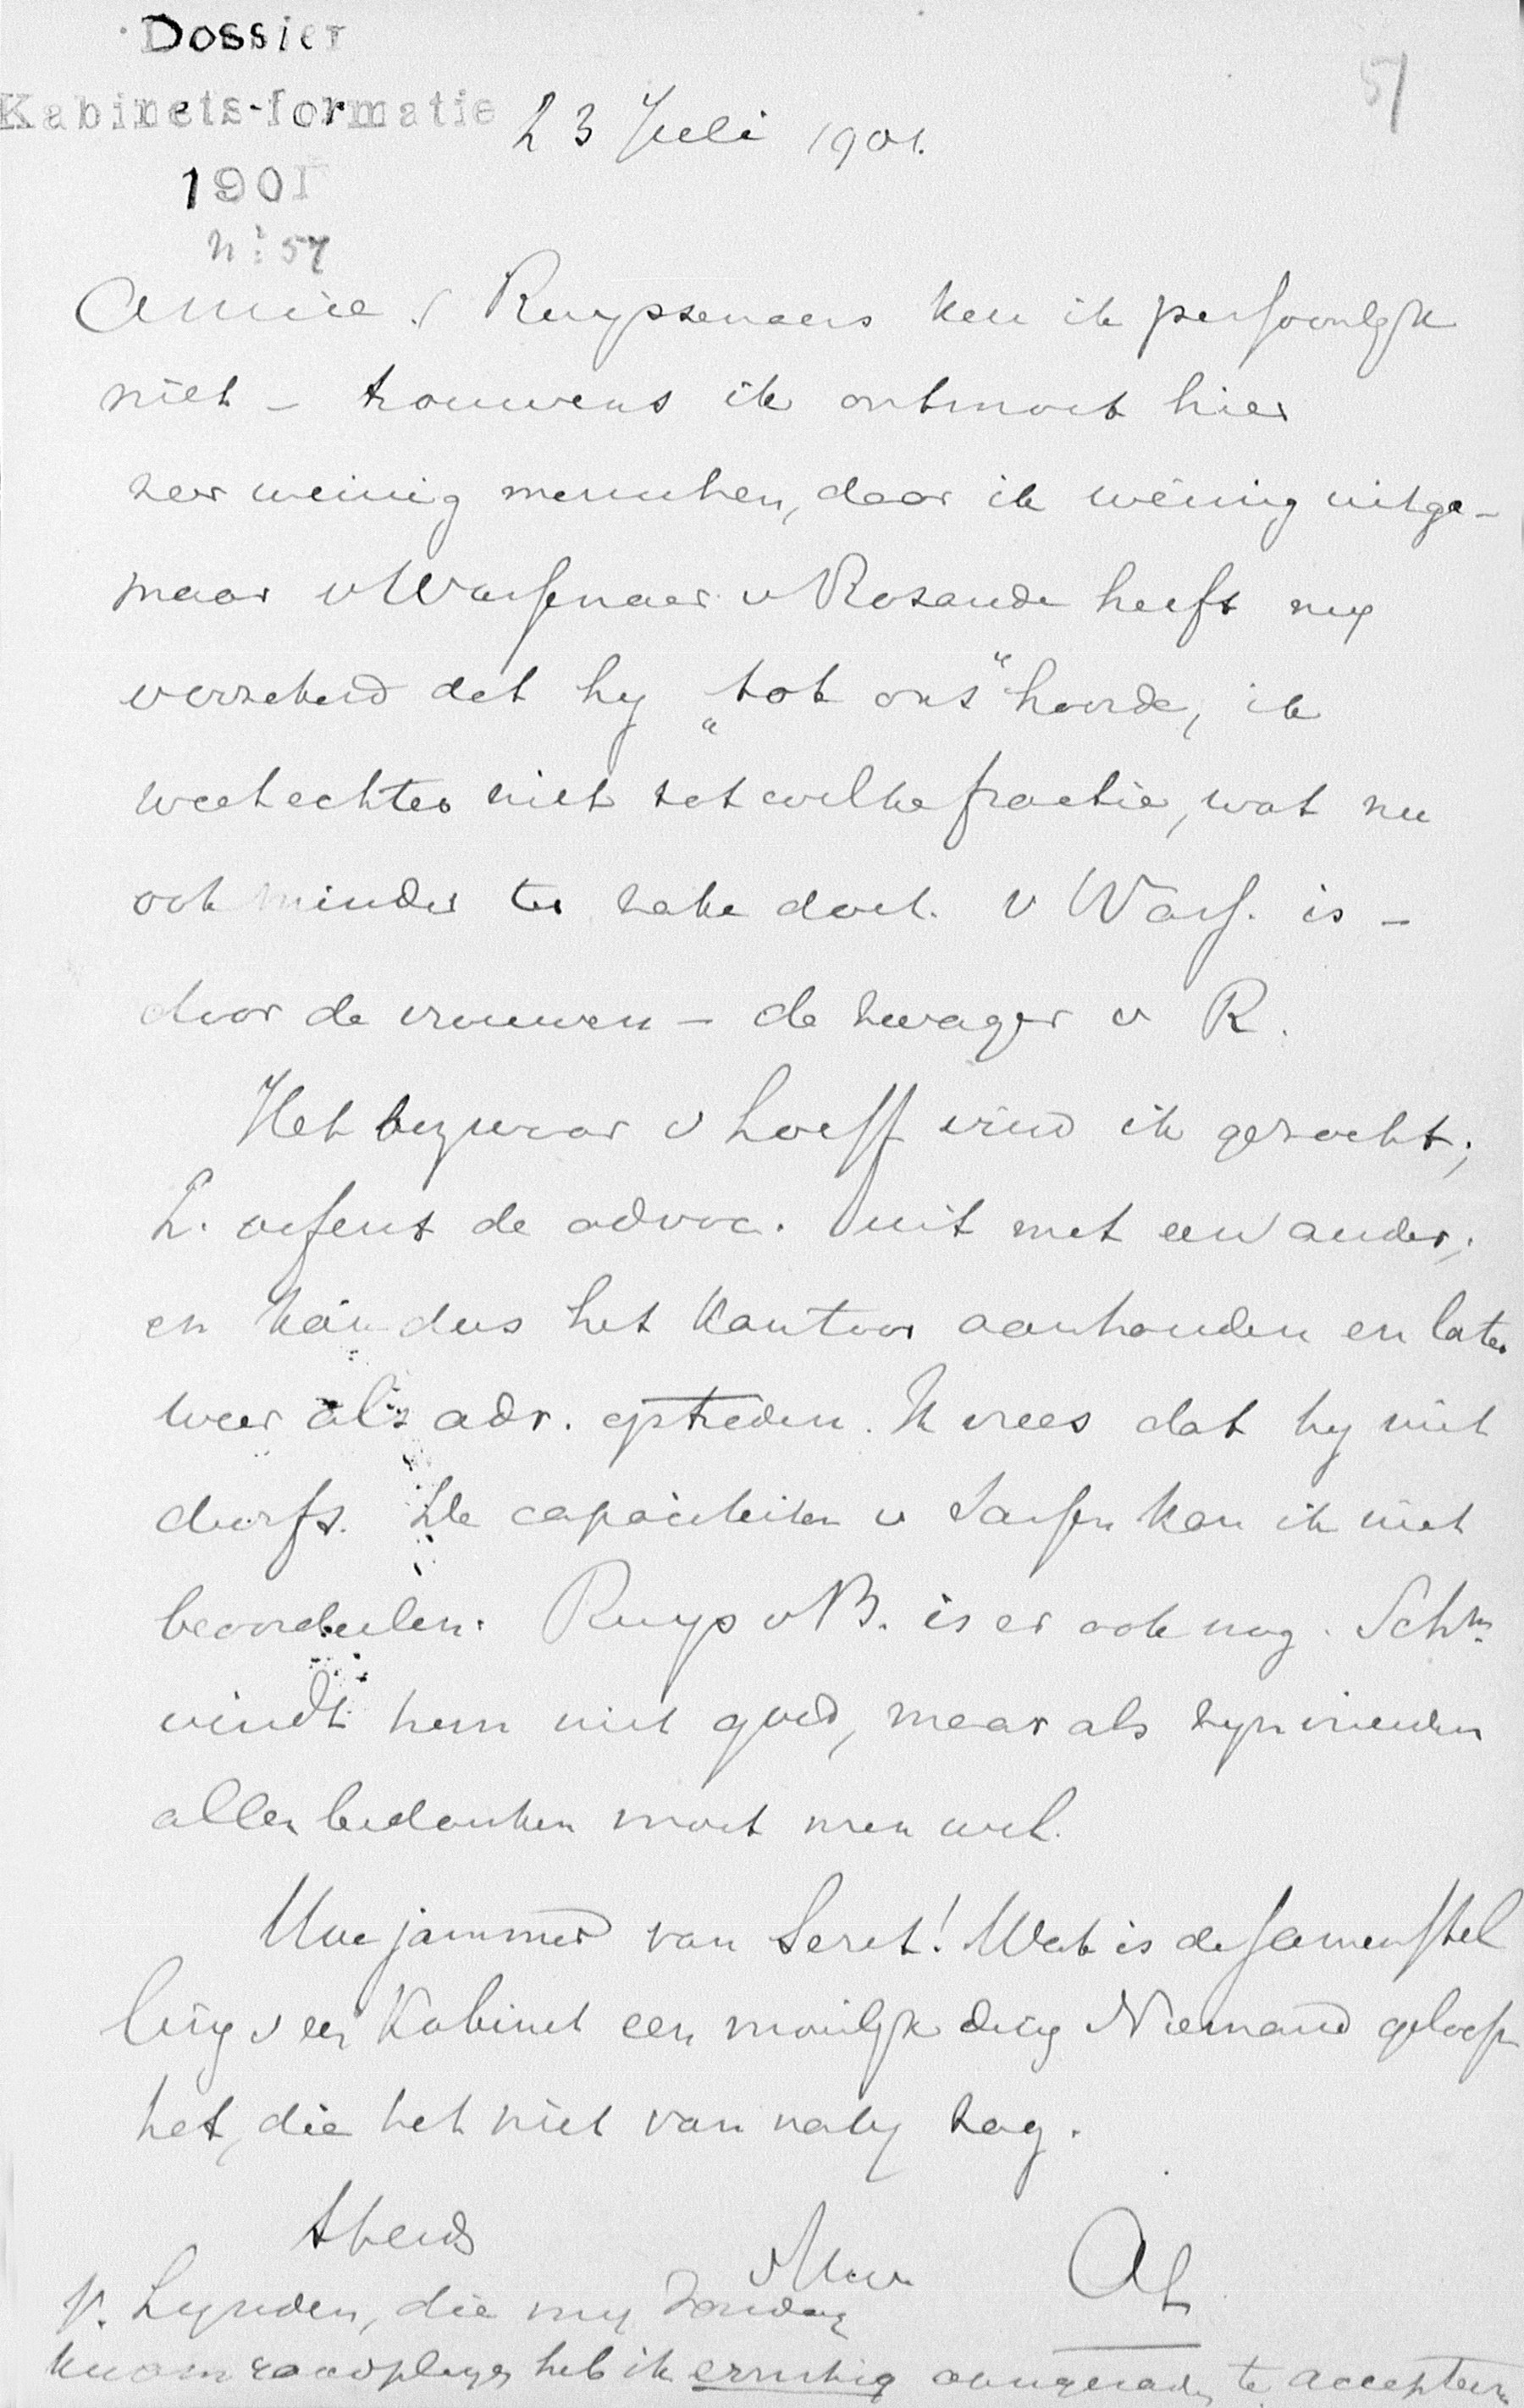 Dossier
Kabinets-formatie
1901
n: 57
57
23 Juli 1901.
Amice! Ruyssenaers ken ik persoonlyk
niet – trouwens ik ontmoet hier
zeer weinig menschen, daar ik weinig uitga –
maar v Wassenaer v Rosande heeft my
verzekerd dat hy „tot ons" hoorde, ik
weet echter niet tot welke fractie, wat nu
ook minder ter zake doet. v Wass. is –
door de vrouwen – de zwager v R.
Het bezwaar v Loeff vind ik gezocht;
L. oefent de advoc. uit met een ander,
en kán dus het kantoor aanhouden en later
weer als adv. optreden. Ik vrees dat hy niet
durft. De capaciteiten v Jansen kan ik niet
beoordeelen. Ruys v B. is er ook nog. Schn.
vindt hem niet goed, maar als zyn vrienden
allen bedanken moet men wel.
Hoe jammer van Seret! Wat is de samenstel
ling v een Kabinet een moeilyk ding Niemand gelooft
het, die het niet van naby zag.
t.
v. Lynden, die my Zondag
kwam raadplegen heb ik ernstig aangeraden te accepteeren